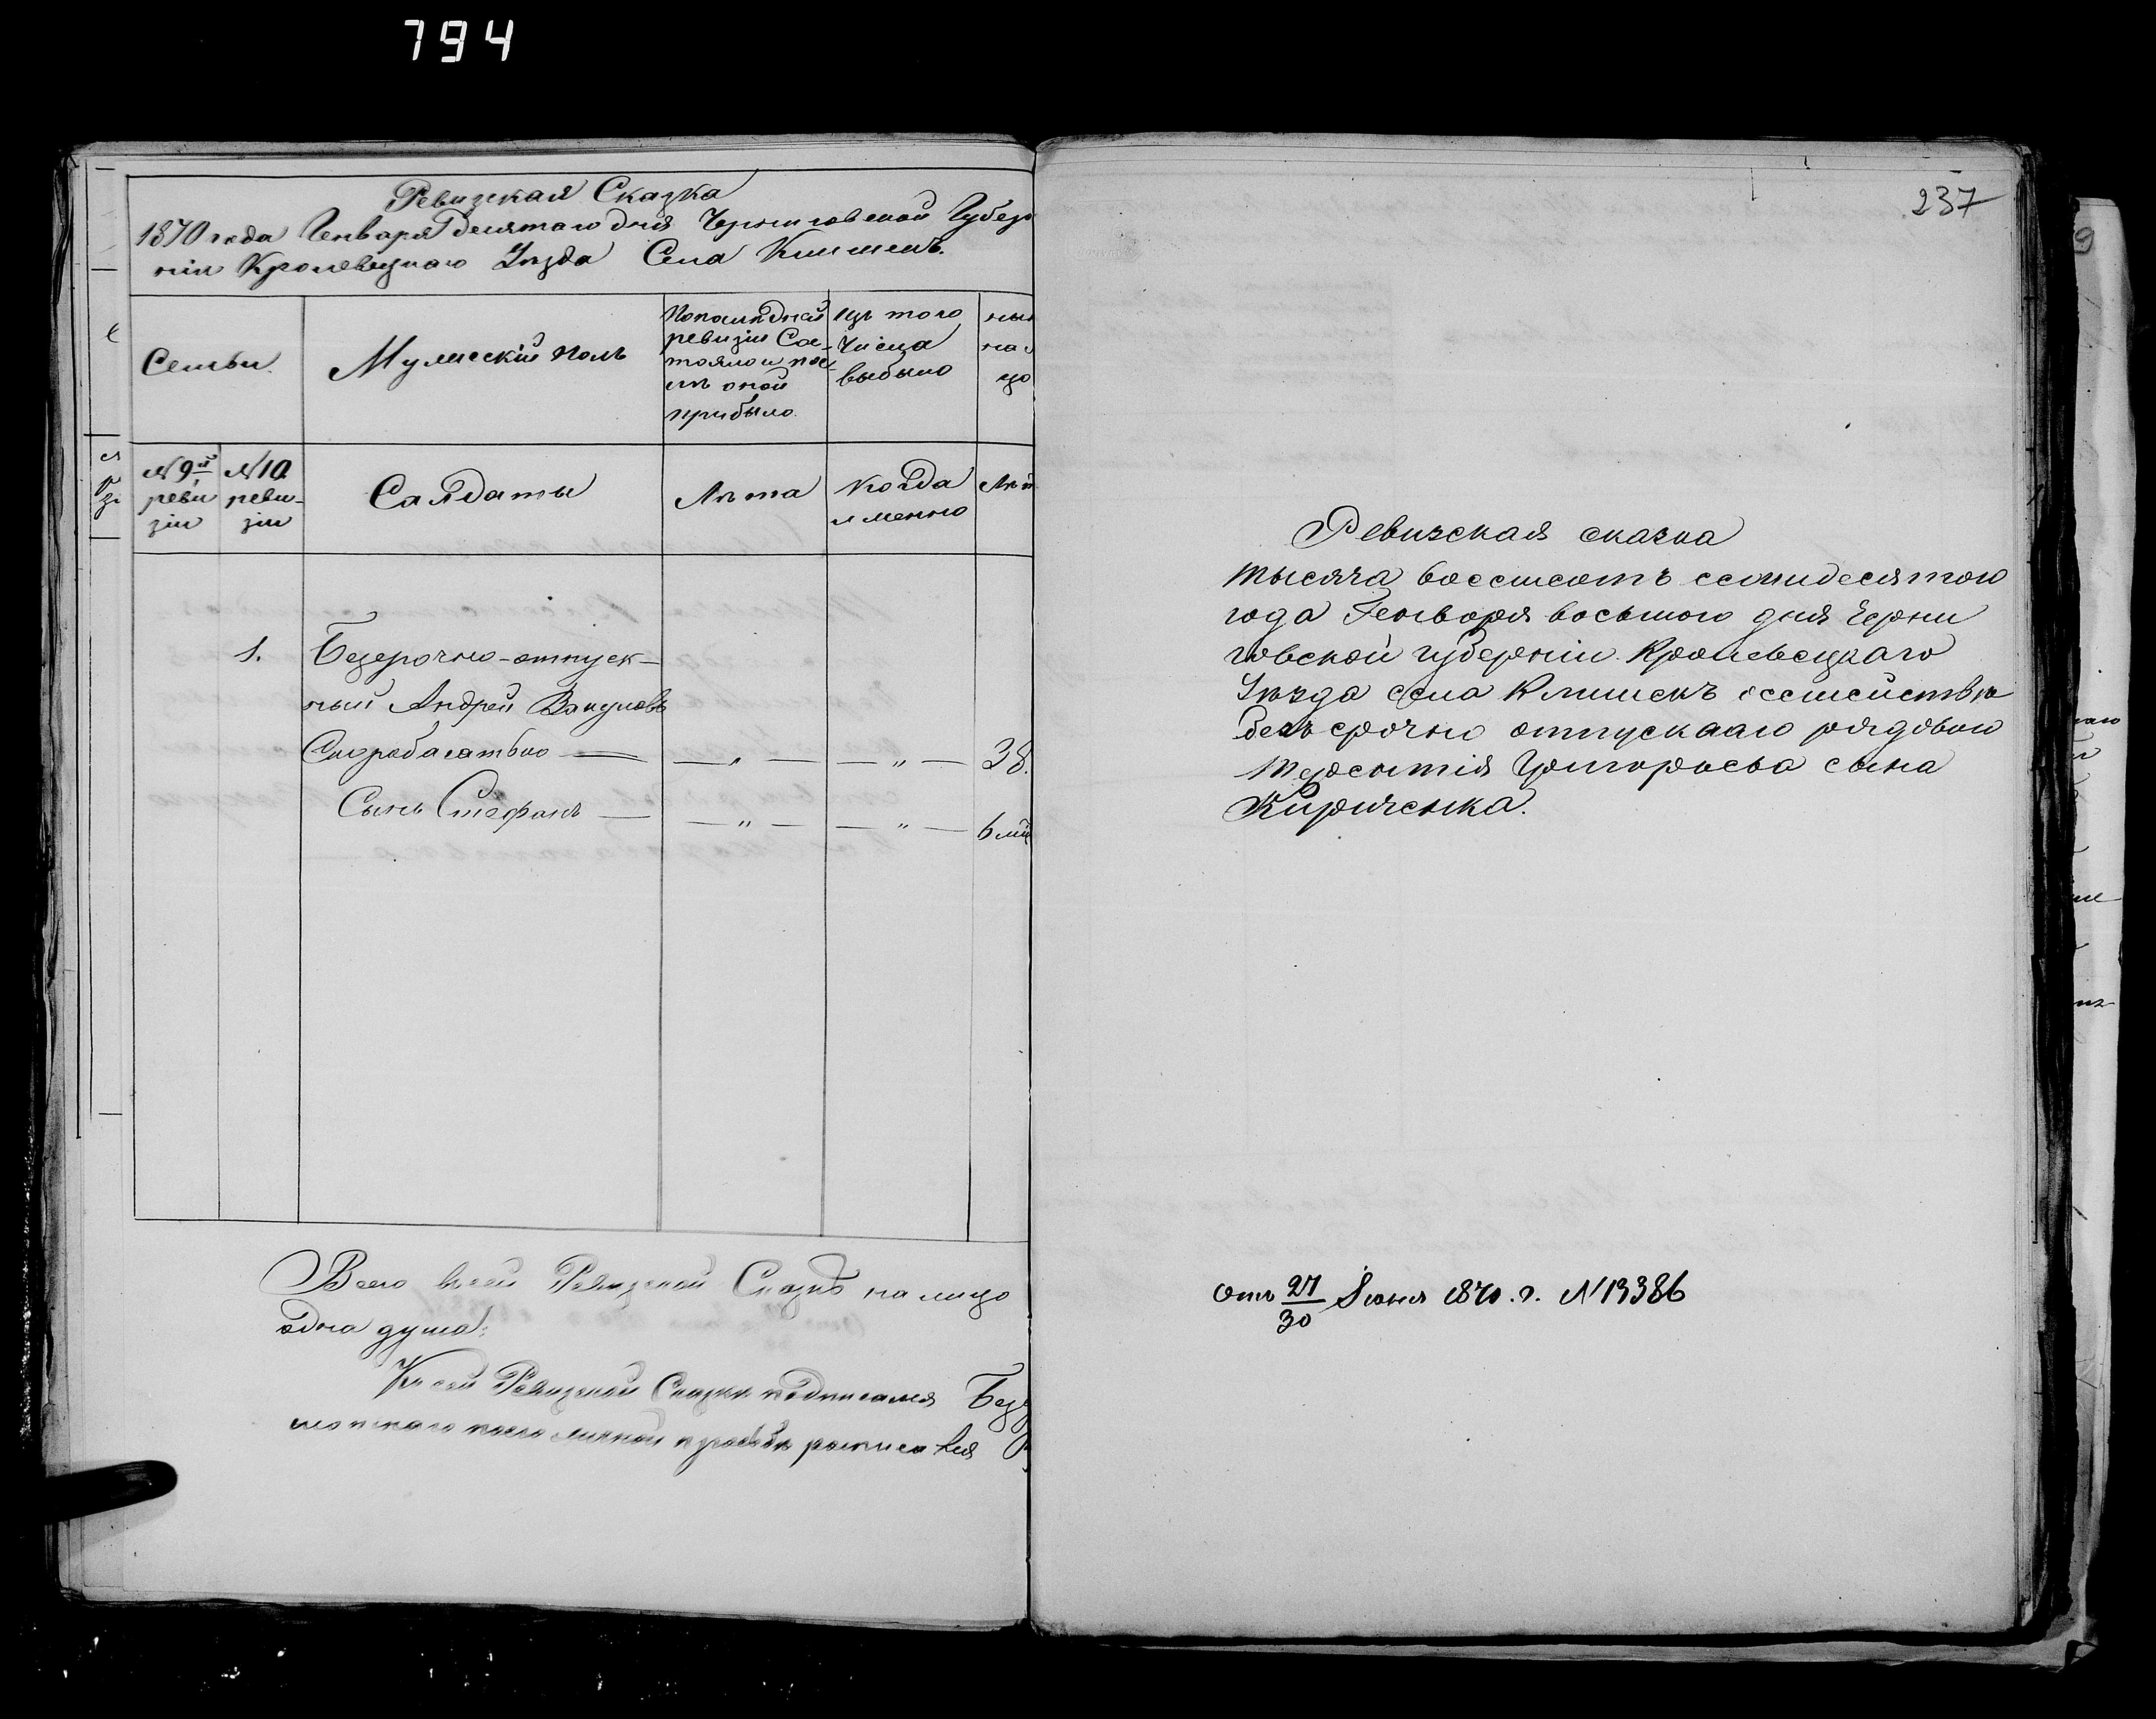 794
Ревизская Сказка
1870 года Генваря десятаго дня Черниговской Губер
ніи Кролевецкаго Уезда Села Клишекъ.
Семьи
Мужескій полъ
По последней
ревизіи Сос-
тояло и пос-
ле оной
прибыло.
Изъ того
Числа
выбыло
ны
на
цо
№ 9й
реви
зіи
№ 10
реви-
зіи
Салдаты
Лета
Когда
именно
Лет
1.
Безсрочно-отпуск-
ный Андрей Вакуловъ
— „ — — „ — 38.
Сынъ Стефанъ — — „ — — „ — 6 м
Всего въ сей Ревизской Сказке на лицо
одна душа:
Къ сей Ревизской Сказке подписался Без
личной прозбе росписался
237
Ревизская сказка
тысяча восемсотъ семидесятого
года Генворя восьмого дня Черни
говской губерніи Кролевецкаго
Уезда села Клишекъ о семействе
безъ срочно отпускнаго рядового
Терентія Григорьева сына
Кириченка.
Отъ 27/30 Іюня 1870. г. № 19386